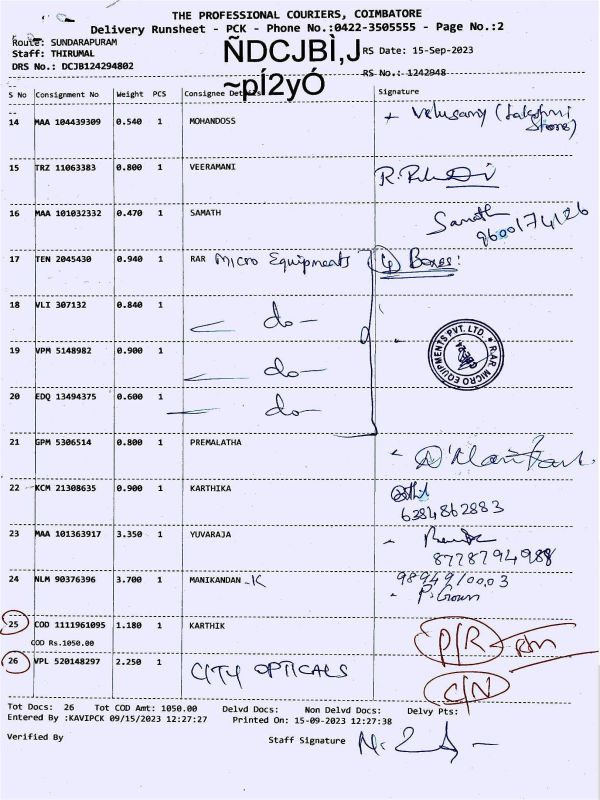 THE PROFESSIONAL COURIERS, COIMBATORE
Delivery Runsheet - PCK - Phone No.:0422-3505555 - Page No.:2
Route: SUNDARAPURAM
ÑDCJBÌ,J
RS Date: 15-Sep-2023
Staff: THIRUMAL
DRS No.: DCJB124294802
~pÍ2yÓ
RS No.: 1242948
S No Consignment No Weight PCS Consignee Details Signature
14 MAA 104439309 0.540 1 MOHANDOSS Velusamy (Lakshmi Store)
15 TRZ 11063383 0.800 1 VEERAMANI
16 MAA 101032332 0.470 1 SAMATH Samath
9600174126
17 TEN 2045430 0.940 1 RAR Micro Equipments 4 Boxes:
18 VLI 307132 0.840 1 do-
19 VPM 5148982 0.900 1 do-
20 EDQ 13494375 0.600 1 do-
RAR MICRO EQUIPMENTS PVT. LTD.
21 GPM 5306514 0.800 1 PREMALATHA
22 KCM 21308635 0.900 1 KARTHIKA
6384862883
23 MAA 101363917 3.350 1 YUVARAJA
8778794988
24 NLM 90376396 3.700 1 MANIKANDAN -K 9894910003
25 COD 1111961095 1.180 1 KARTHIK P/R
COD Rs.1050.00
26 VPL 520148297 2.250 1 CITY OPTICALS C/N
Tot Docs: 26 Tot COD Amt: 1050.00 Delvd Docs: Non Delvd Docs: Delvy Pts:
Entered By :KAVIPCK 09/15/2023 12:27:27 Printed On: 15-09-2023 12:27:38
Verified By Staff Signature